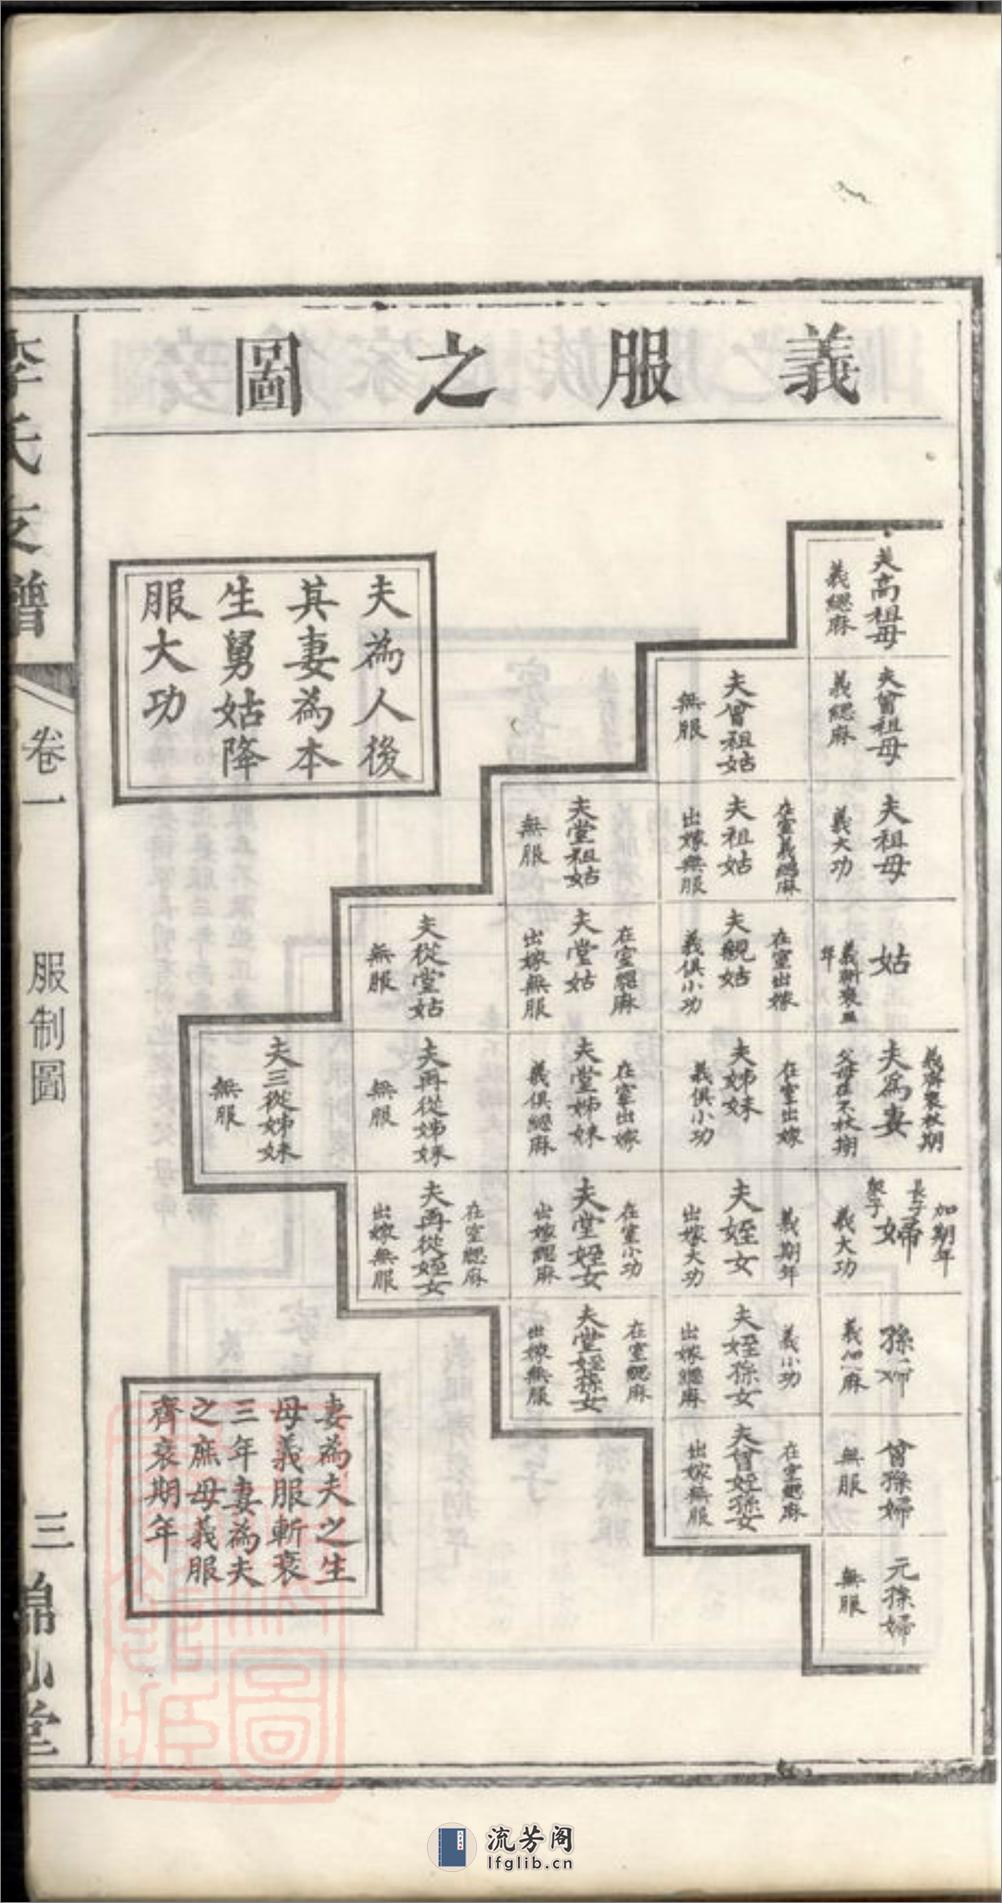 義服之圖
夫高祖母
義緦麻
夫曾祖母
義緦麻
夫曾祖姑
無服
夫祖母
義大功
在室義緦麻
夫祖姑
出嫁無服
夫堂祖姑
無服
姑
義斬衰三
年
在室出嫁
夫親姑
義俱小功
在室緦麻
夫堂姑
出嫁無服
夫從堂姑
無服
義齊衰杖期
夫為妻
父母在不杖期
在室出嫁
夫姊妹
義俱小功
在室出嫁
夫堂姊妹
義俱緦麻
夫再從姊妹
無服
夫三從姊妹
無服
加期年
長子
婦
眾子
義大功
義期年
夫姪女
出嫁大功
在室小功
夫堂姪女
出嫁緦麻
在室緦麻
夫再從姪女
出嫁無服
孫婦
義緦麻
義小功
夫姪孫女
出嫁緦麻
在室緦麻
夫堂姪孫女
出嫁無服
曾孫婦
無服
在室緦麻
夫曾姪孫女
出嫁無服
元孫婦
無服
夫為人後
其妻為本
生舅姑降
服大功
妻為夫之生
母義服斬衰
三年妻為夫
之庶母義服
齊衰期年
李氏支譜
卷一
服制圖
三
流芳阁
lfglib.cn